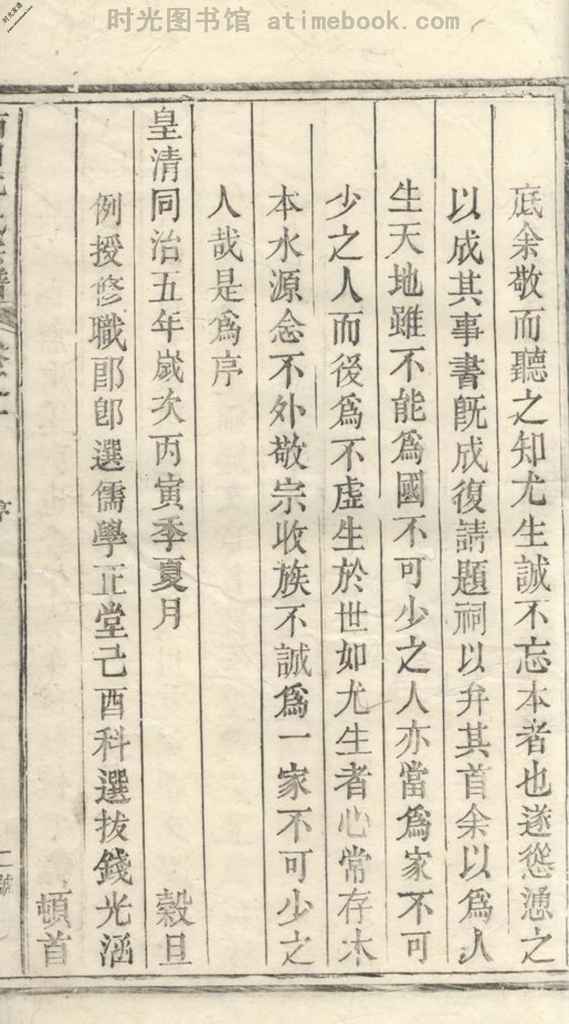 时光图书馆 atimebook.com
底余敬而聽之知尤生誠不忘本者也遂慫慂之
以成其事書旣成復請題祠以弁其首余以爲人
生天地雖不能爲國不可少之人亦當爲家不可
少之人而後爲不虛生於世如尤生者心常存木
本水源念不外敬宗收族不誠爲一家不可少之
人哉是爲序
皇清同治五年歲次丙寅季夏月 穀旦
例授修職郎卽選儒學正堂己酉科選拔錢光涵
頓首
序